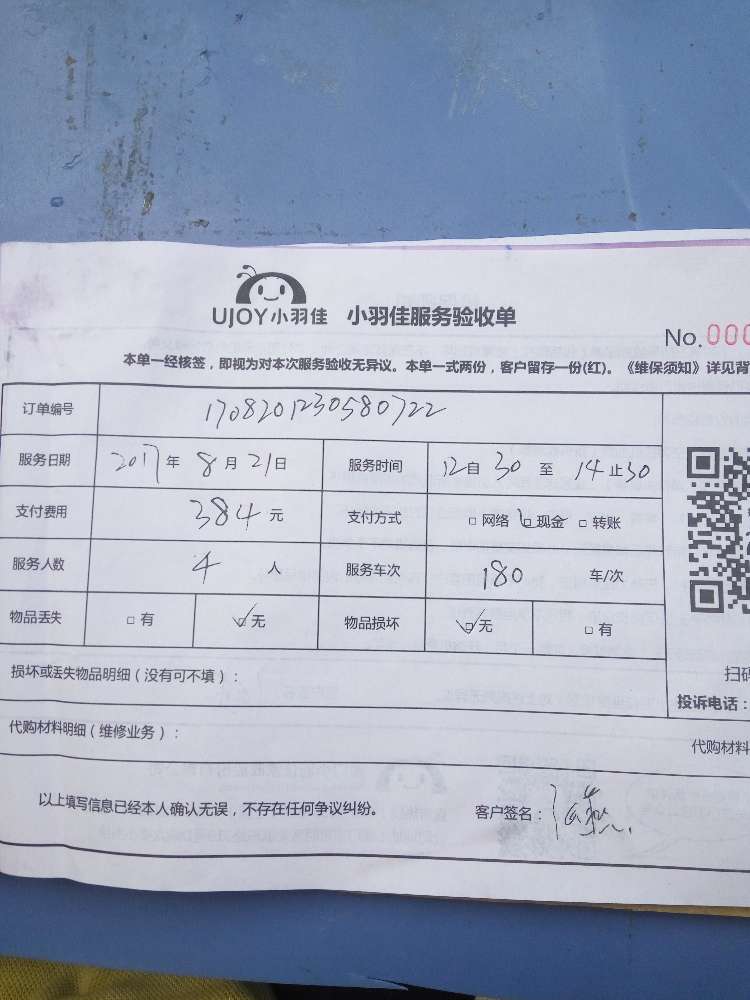 UJOY小羽佳 小羽佳服务验收单
No.000
本单一经核签，即视为对本次服务验收无异议。本单一式两份，客户留存一份(红)。《维保须知》详见背
订单编号 1708201230580722
服务日期 2017年8月21日 服务时间 12自30至14止30
支付费用 384元 支付方式 □网络 □现金 □转账
服务人数 4人 服务车次 180 车/次
物品丢失 □有 ☑无 物品损坏 ☑无 □有
损坏或丢失物品明细（没有可不填）：
扫码
投诉电话：
代购材料明细（维修业务）：
代购材料
以上填写信息已经本人确认无误，不存在任何争议纠纷。 客户签名：